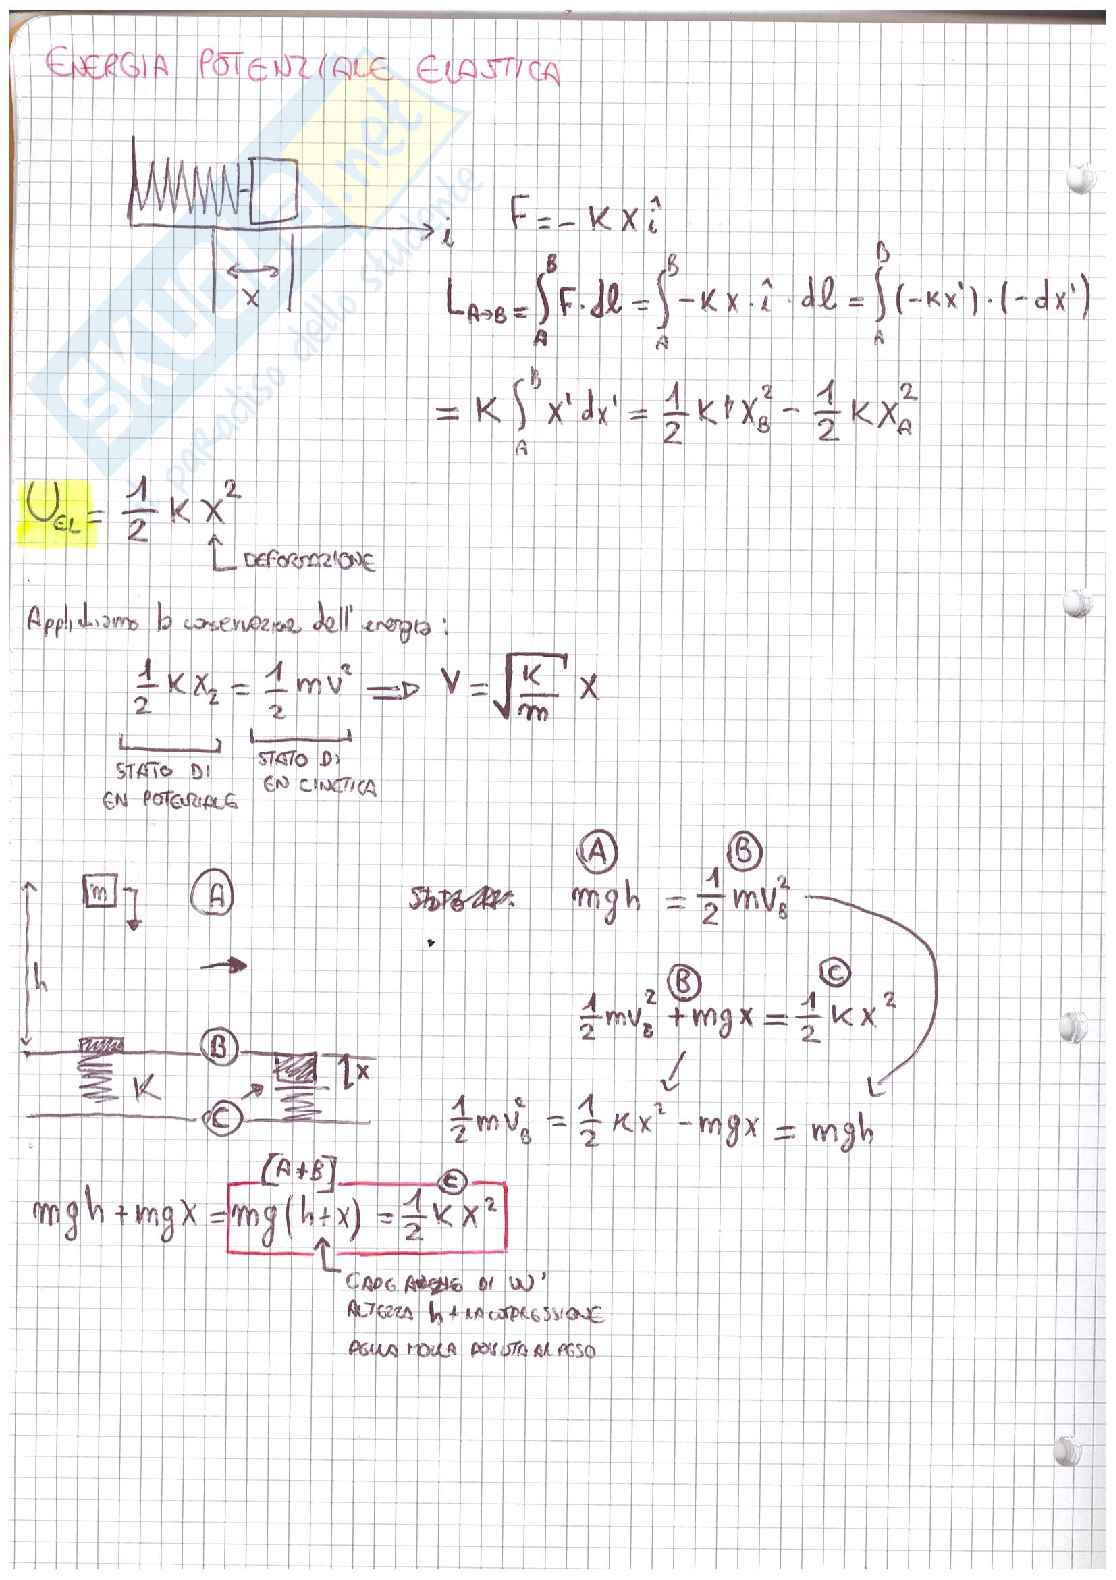 ENERGIA POTENZIALE ELASTICA
SKUOLA.net
paradiso dello studente
x
i
F = - K x î
L A→B = ∫ A B F · dl = ∫ A B -Kx · î · dl = ∫ A B (-Kx') · (-dx')
= K ∫ A B x' dx' = 1/2 K x_B² - 1/2 K x_A²
U_EL = 1/2 K x²
DEFORMAZIONE
Applichiamo la conservazione dell'energia:
1/2 K x_2 = 1/2 m v² ⇒ V = √(K/m) x
STATO DI
EN POTENZIALE
STATO DI
EN CINETICA
A
B
m
A
mgh = 1/2 m v_B²
h
B
C
1/2 m v_B² + mgx = 1/2 K x²
B
x
K
C
1/2 m v_B² = 1/2 K x² - mgx = mgh
[A+B]
C
mgh + mgx = mg(h+x) = 1/2 K x²
CADE DI UN'
ALTEZZA h + LA COMPRESSIONE
DELLA MOLLA DOVUTA AL PESO